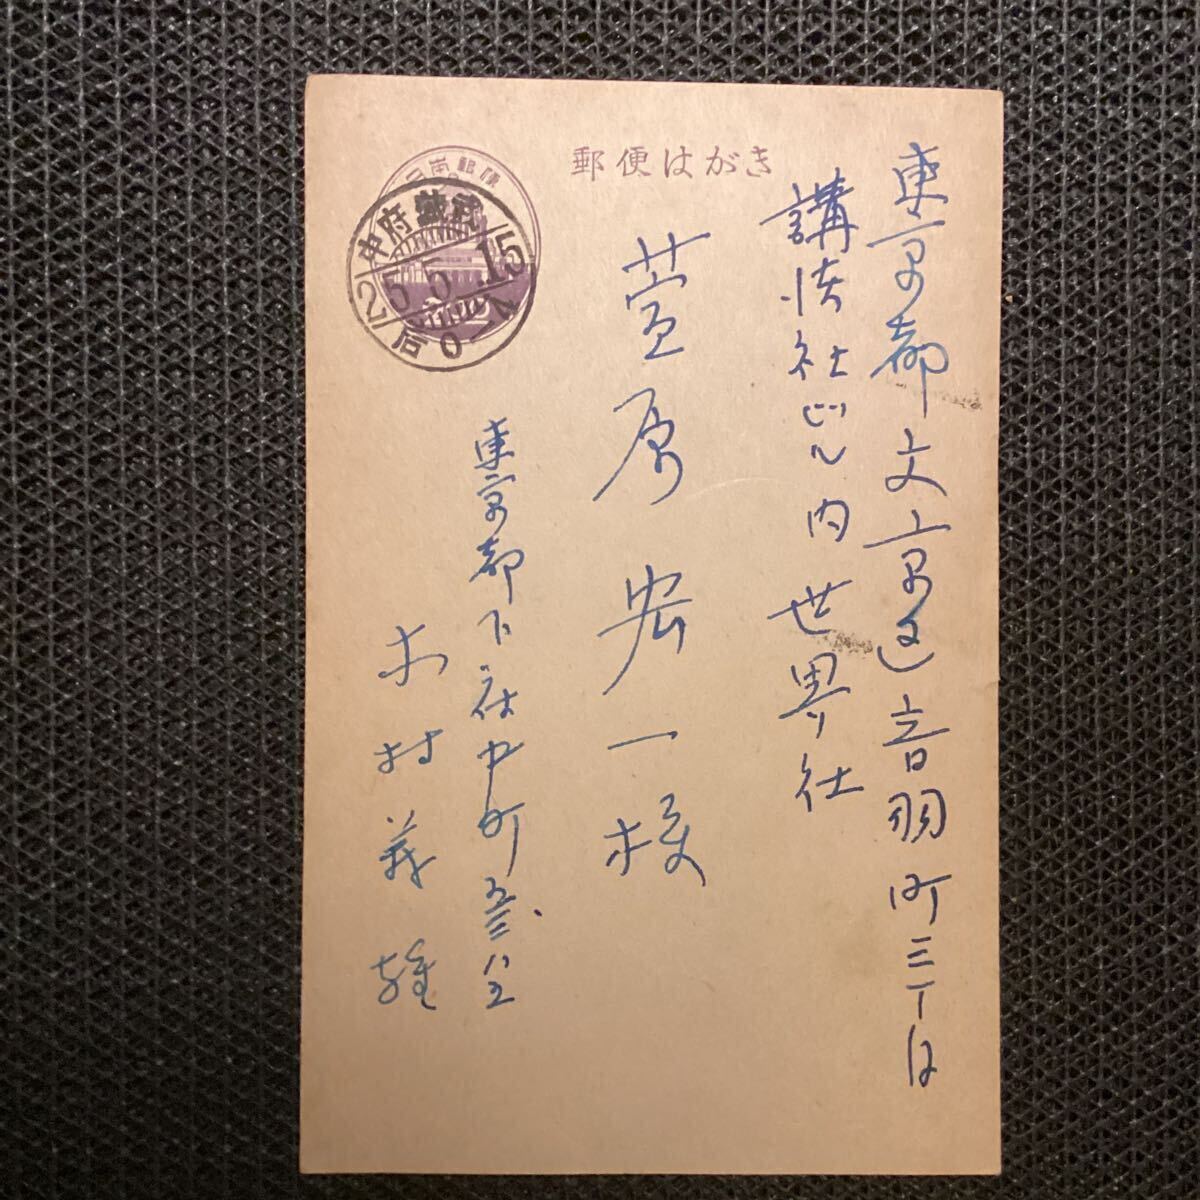 郵便はがき
日本郵便
武蔵府中
25.5.15
后0-4
東京都文京区音羽町三丁目
講談社ビル内世界社
萱原宏一様
東京都下府中町五三八五
木村義雄